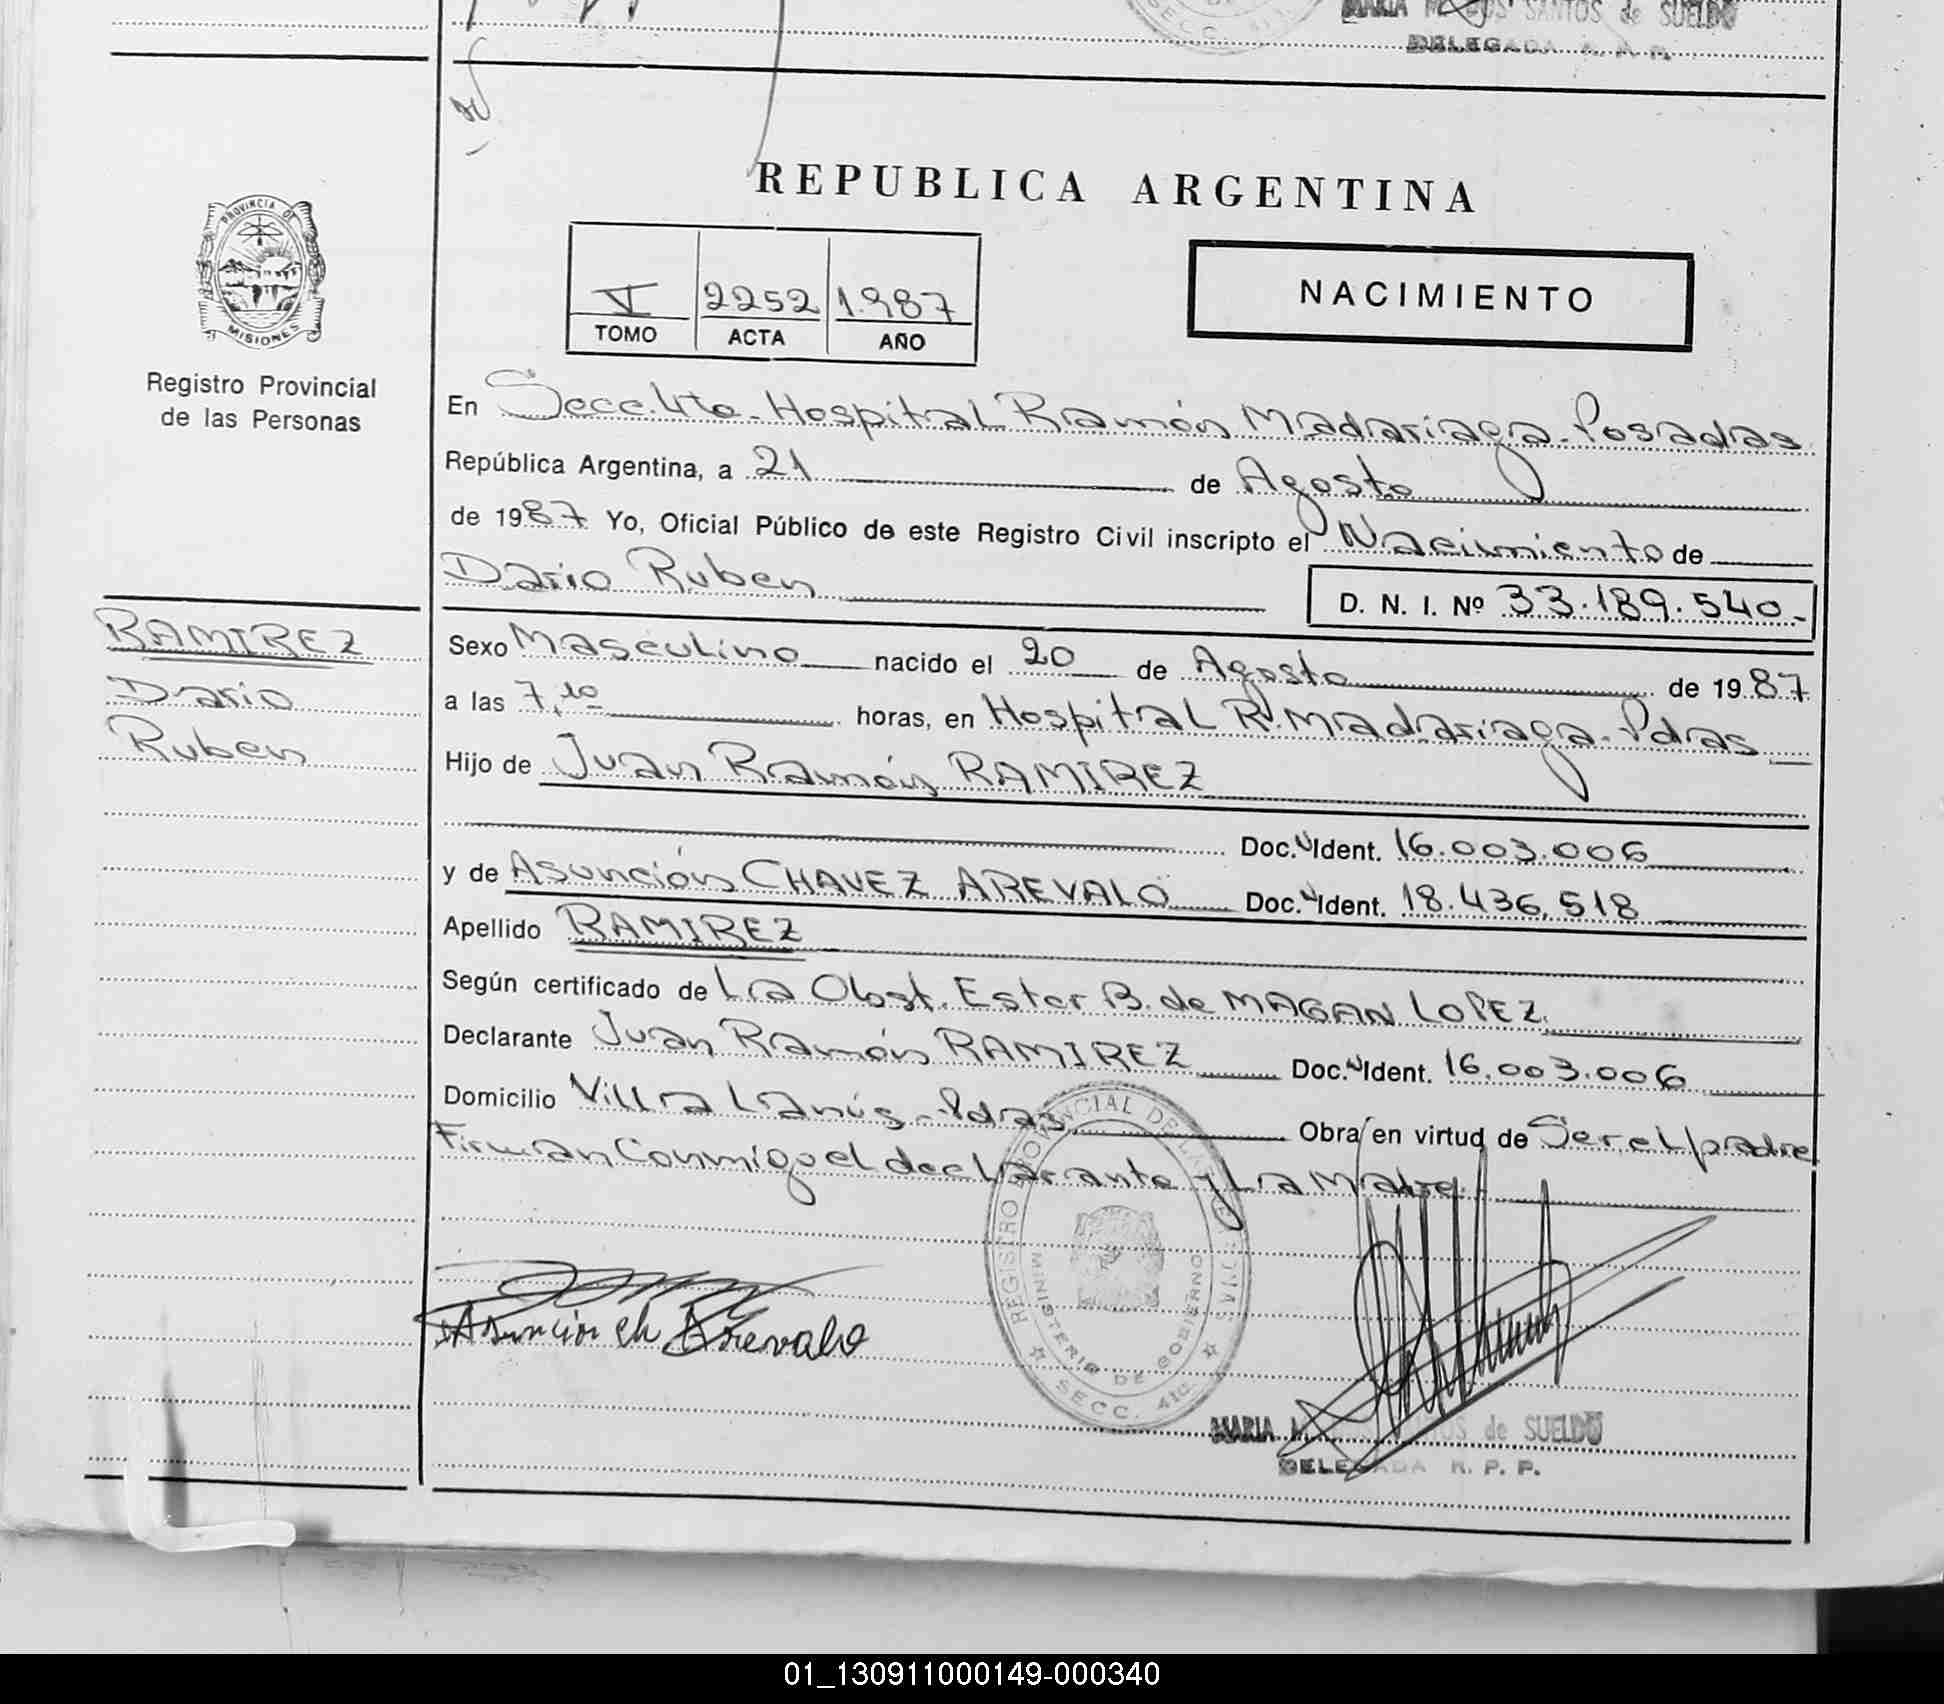 SANTOS de SUELDO
DELEGADA R. P. P.
REPUBLICA ARGENTINA
PROVINCIA DE
MISIONES
Registro Provincial
de las Personas
V 2252 1.987
TOMO ACTA AÑO
NACIMIENTO
En Secc. 4ta - Hospital Ramón Madariaga - Posadas
República Argentina, a 21 de Agosto
de 1987 Yo, Oficial Público de este Registro Civil inscripto el Nacimiento de
Dario Ruben D. N. I. Nº 33.189.540.-
RAMIREZ
Dario
Ruben
Sexo Masculino nacido el 20 de Agosto de 1987
a las 7,10 horas, en Hospital R. Madariaga - Pdas
Hijo de Juan Ramón RAMIREZ
Doc. Ident. 16.003.006
y de Asunción CHAVEZ AREVALO Doc. Ident. 18.436.518
Apellido RAMIREZ
Según certificado de La Obst. Ester B. de MAGAN LOPEZ.
Declarante Juan Ramón RAMIREZ Doc. Ident. 16.003.006
Domicilio Villa Lanús - Pdas Obra en virtud de Ser el padre
Firman Conmigo el declarante y La Madre.-
Asuncion ch Arevalo
REGISTRO PROVINCIAL DE LAS PERSONAS
MINISTERIO DE GOBIERNO
SECC. 4ta.
MARIA SANTOS de SUELDO
DELEGADA R. P. P.
01_130911000149-000340